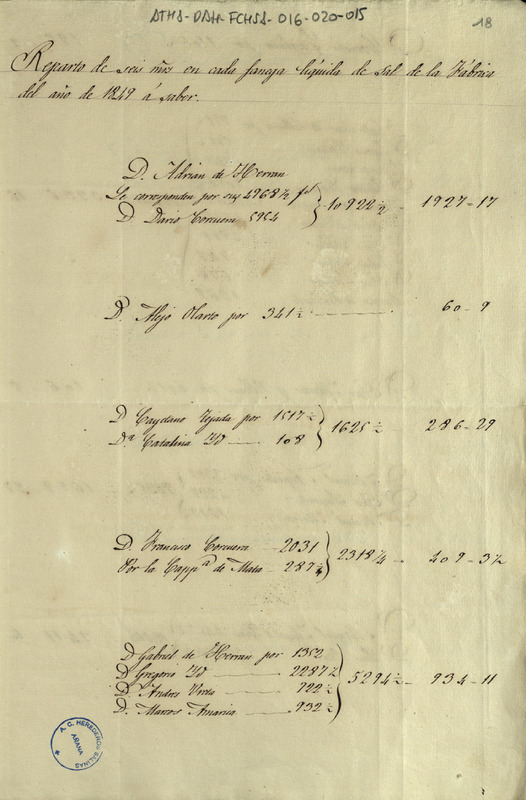 ATHA-DAH-FCHSA-016-020-015
18
Reparto de seis mrs en cada fanega líquida de sal de la Fábrica
del año de 1849 á saber.
D. Adrian de Herran
Le corresponden por sus 4968½ fs
D Dario Corcuera 5954 } 10922½ - 1927-17
D. Alejo Olarte por 341½ 60-9
D Cayetano Tejada por 1517½
Da Catalina Yd 108 } 1625½ 286-29
D. Francisco Corcuera 2031
Por la Cappª de Mata 287¼ } 2318¼ 409-3½
D Gabriel de Herran por 1352
D Gregorio Yd 2287½
D. Andres 722½
D. Marcos Amarica 932½ } 5294½ 934-11
A. C. HEREDEROS SALINAS
ARANA